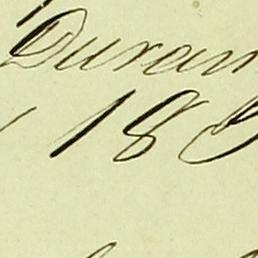 Duran
18